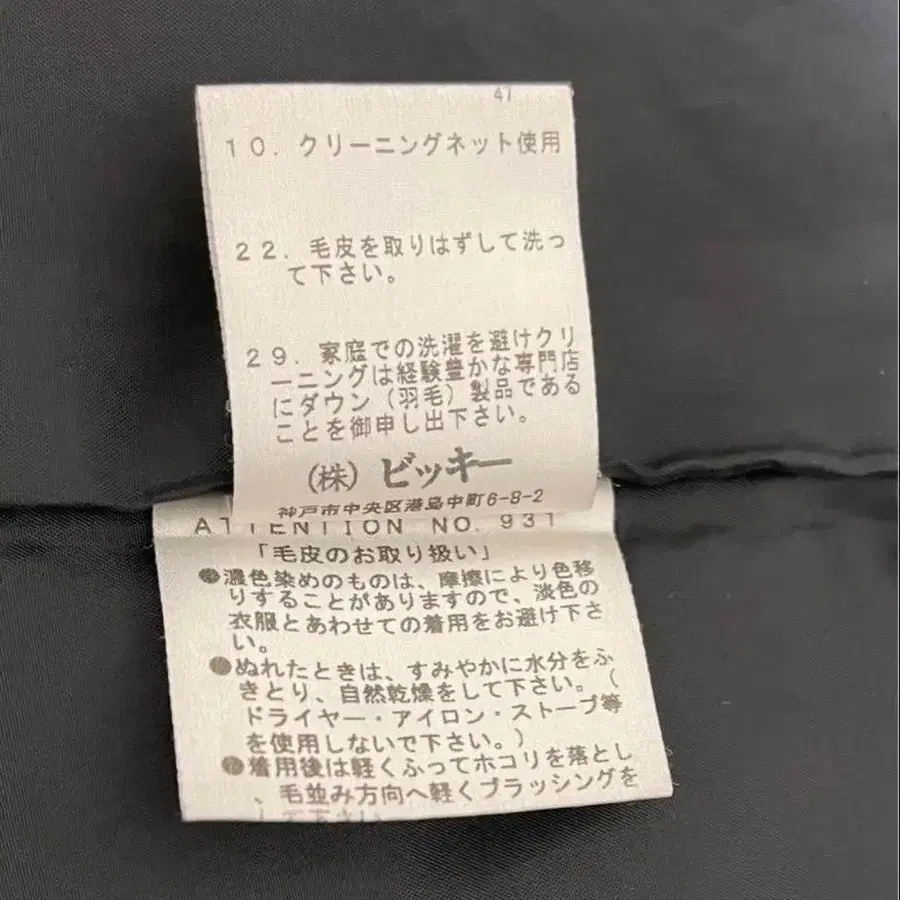 47
10. クリーニングネット使用
22. 毛皮を取りはずして洗っ
て下さい。
29. 家庭での洗濯を避けクリ
ーニングは経験豊かな専門店
にダウン（羽毛）製品である
ことを御申し出下さい。
（株）ビッキー
神戸市中央区港島中町6-8-2
ATTENTION NO. 931
「毛皮のお取り扱い」
●濃色染めのものは、摩擦により色移
りすることがありますので、淡色の
衣服とあわせての着用をお避け下さ
い。
●ぬれたときは、すみやかに水分をふ
きとり、自然乾燥をして下さい。（
ドライヤー・アイロン・ストーブ等
を使用しないで下さい。）
●着用後は軽くふってホコリを落とし
、毛並み方向へ軽くブラッシングを
して下さい